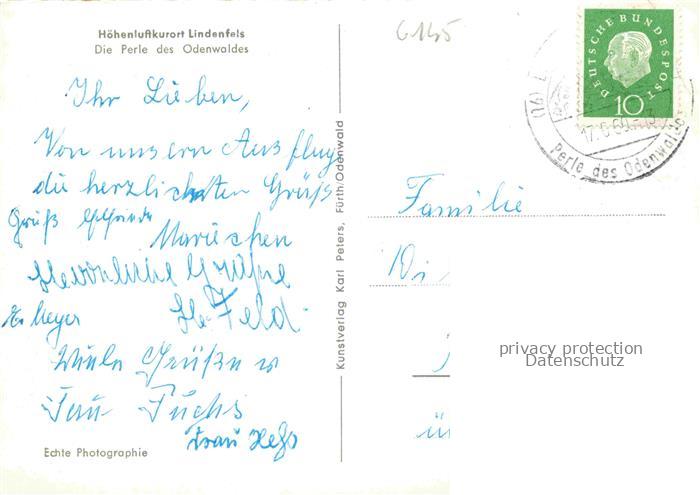 Höhenluftkurort Lindenfels
Die Perle des Odenwaldes
Ihr Lieben,
Von unsern Ausflug
die herzlichsten Grüße
Gruß
Mariechen
Herzliche Grüße
Feld
Meyer
Viele Grüße
Frau Fuchs
Frau Hess
Echte Photographie
Kunstverlag Karl Peters, Fürth/Odenwald
6145
DEUTSCHE BUNDESPOST
10
Perle des Odenwaldes
Familie
privacy protection
Datenschutz